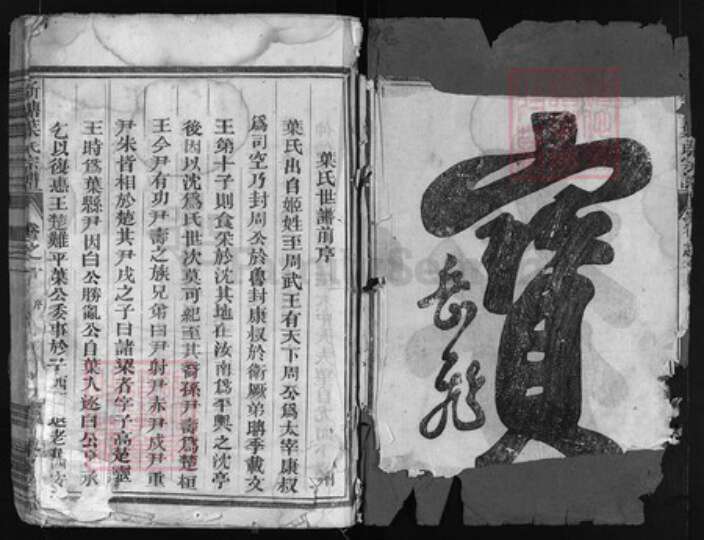 寶
岳飛
葉氏世譜前序
葉氏出自姬姓至周武王有天下周公爲太宰康叔
爲司空乃封周公於魯封康叔於衛厥弟聃季載文
王第十子則食采於沈其地在汝南爲平輿之沈亭
後因以沈爲氏世次莫可紀至其裔孫尹壽爲楚桓
王令尹有功尹壽之族兄弟曰尹射尹赤尹戌尹重
尹朱皆相於楚其尹戌之子曰諸梁者字子高楚惠
王時爲葉縣尹因白公勝亂公自葉入逐白公
乞以復惠王楚難平葉公委事於子西 老
葉氏宗譜